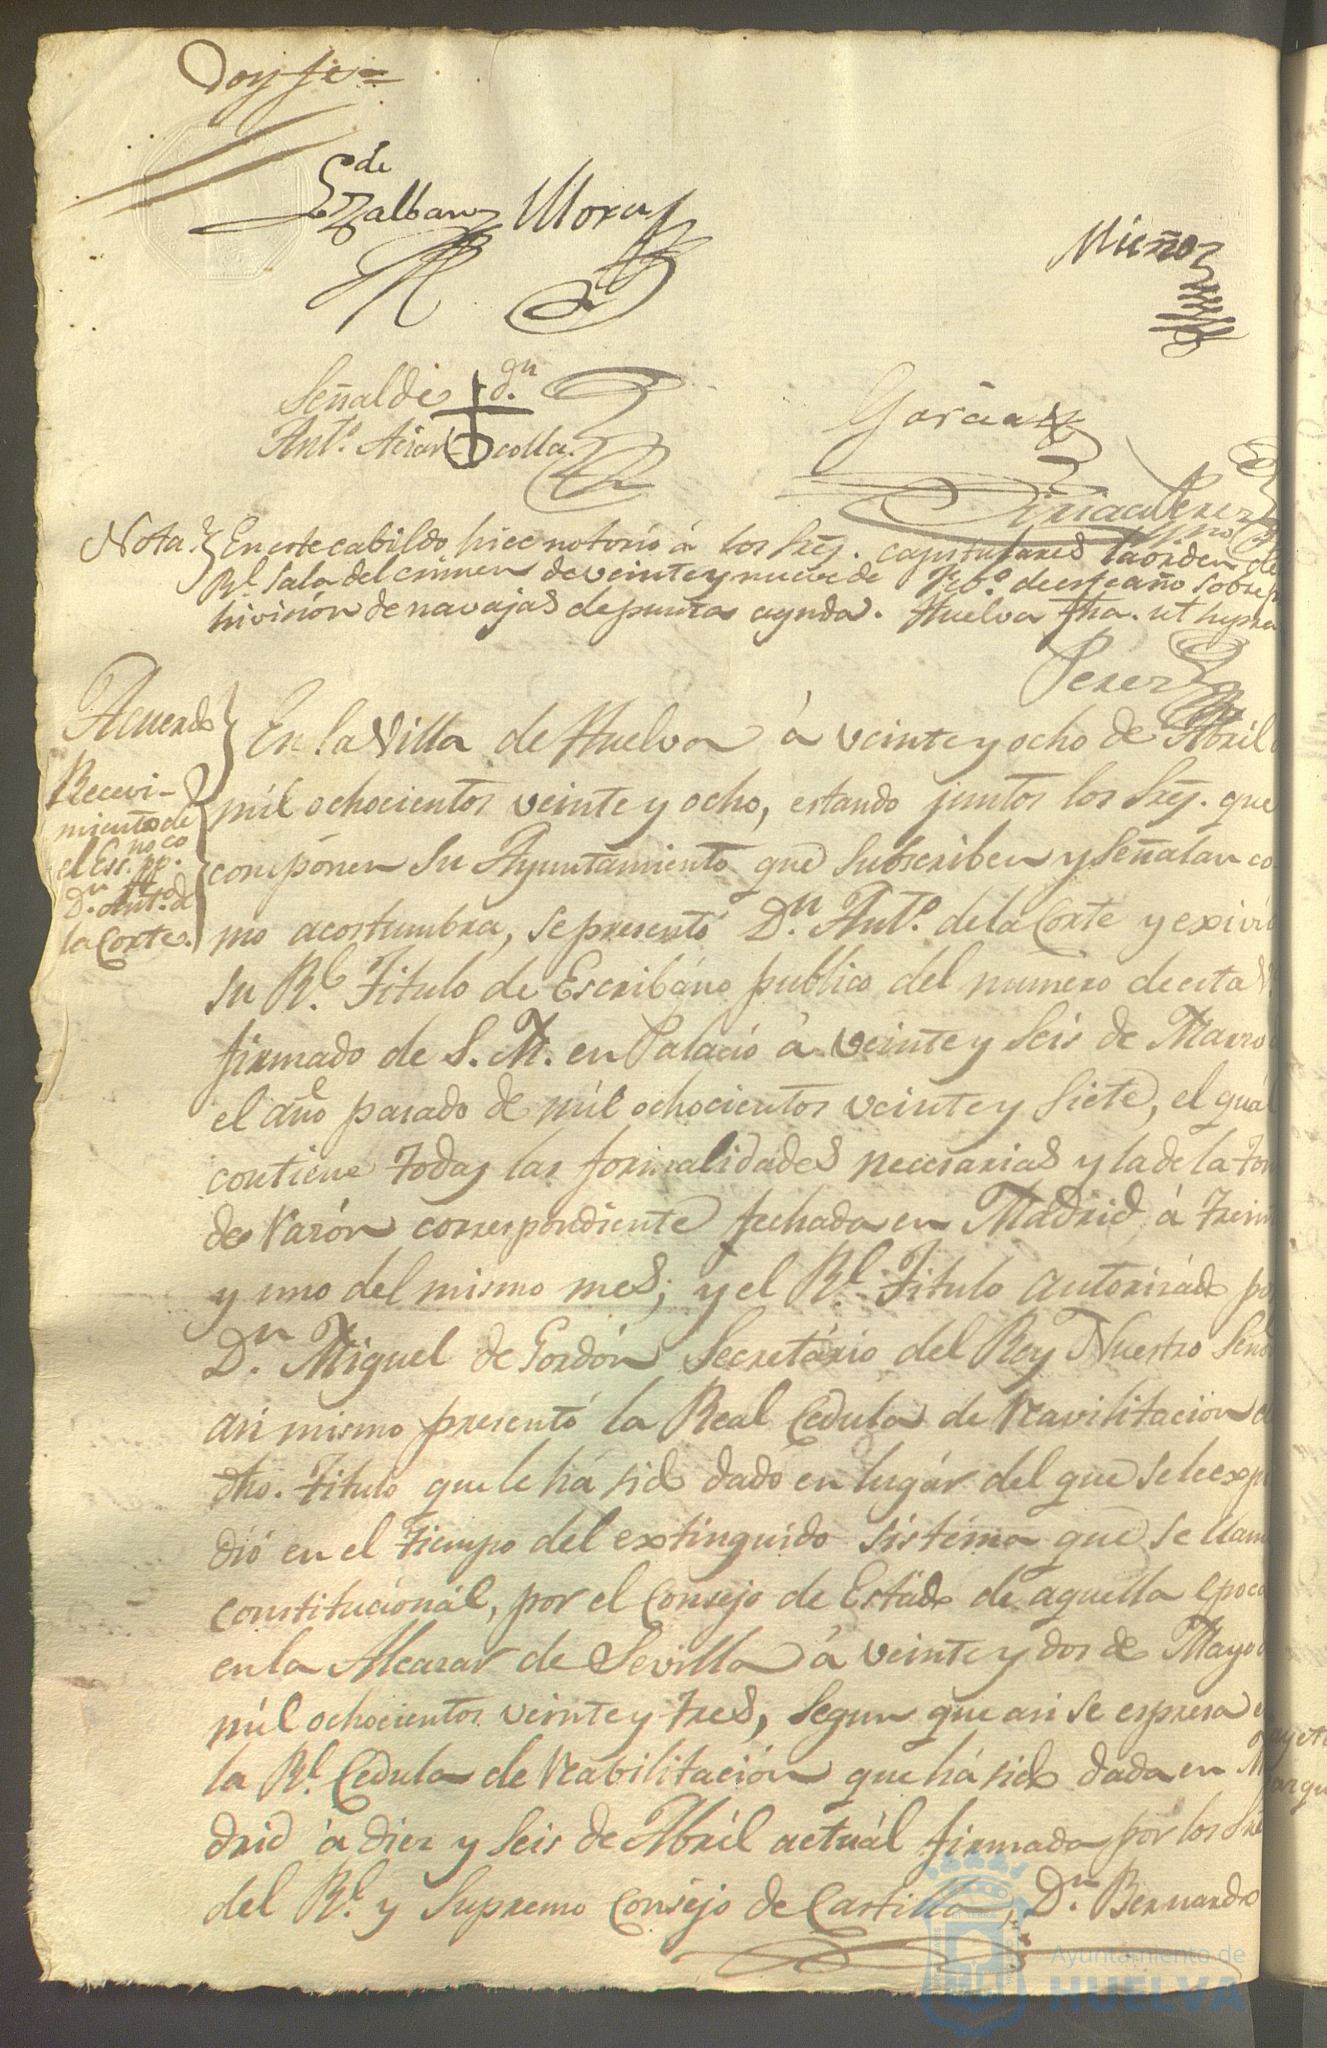 Doy fe=
de
Mora
Muñoz
Señal de + dn.
Anto. Azar colla.
Garcia
Perez
Nota } En este cabildo hice notorio á los Srs. capitulares la orden de
Rl. Sala del crimen de veinte y nueve de Fro. de este año sobre p
hivision de navajas de punta aguda. Huelva fha. ut supra
Perez
Acuerdo } En la Villa de Huelva á veinte y ocho de Abril
Recevi-
miento de
el Essno. ppco.
Dn. Anto. de
la Corte.
mil ochocientos veinte y ocho, estando juntos los Srs. que
componen su Ayuntamiento que subscriben y señalan co
mo acostumbra, se presentó Dn. Anto. de la Corte y exivió
su Rl. Titulo de Escribano publico del numero de esta V
firmado de S. M. en Palacio á veinte y seis de Marzo
el año pasado de mil ochocientos veinte y siete, el qual
contiene todas las formalidades necesarias y la de la tom
de razón correspondiente fechada en Madrid á trein
y uno del mismo mes; y el Rl. Titulo autorizado por
Dn. Miguel de Gordón Secretário del Rey Nuestro Seño
asi mismo presentó la Real Cedula de reavilitacion d
dho. Titulo que le há sido dado en lugár del que se le expi
dió en el tiempo del extinguido sistema que se llam
constitucionál, por el Consejo de Estado de aquella epoca
en la Alcazar de Sevilla á veinte y dos de Mayo
mil ochocientos veinte y tres, segun que asi se espresa e
la Rl. Cedula de reabilitación que há sido dada en M
drid á diez y seis de Abril actuál firmada por los Sre
del Rl. y Supremo Consejo de Castilla, Dn. Bernardo
Ayuntamiento de
HUELVA